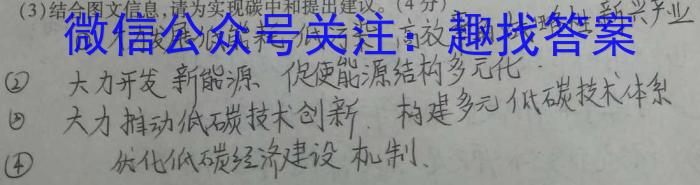 (3)结合图文信息,请为实现碳中和提出建议。(4分)
微信公众号关注：趣找答案
高效 新兴产业
② 大力开发新能源 促使能源结构多元化.
③ 大力推动低碳技术创新. 构建多元低碳技术体系
④ 优化低碳经济建设机制.